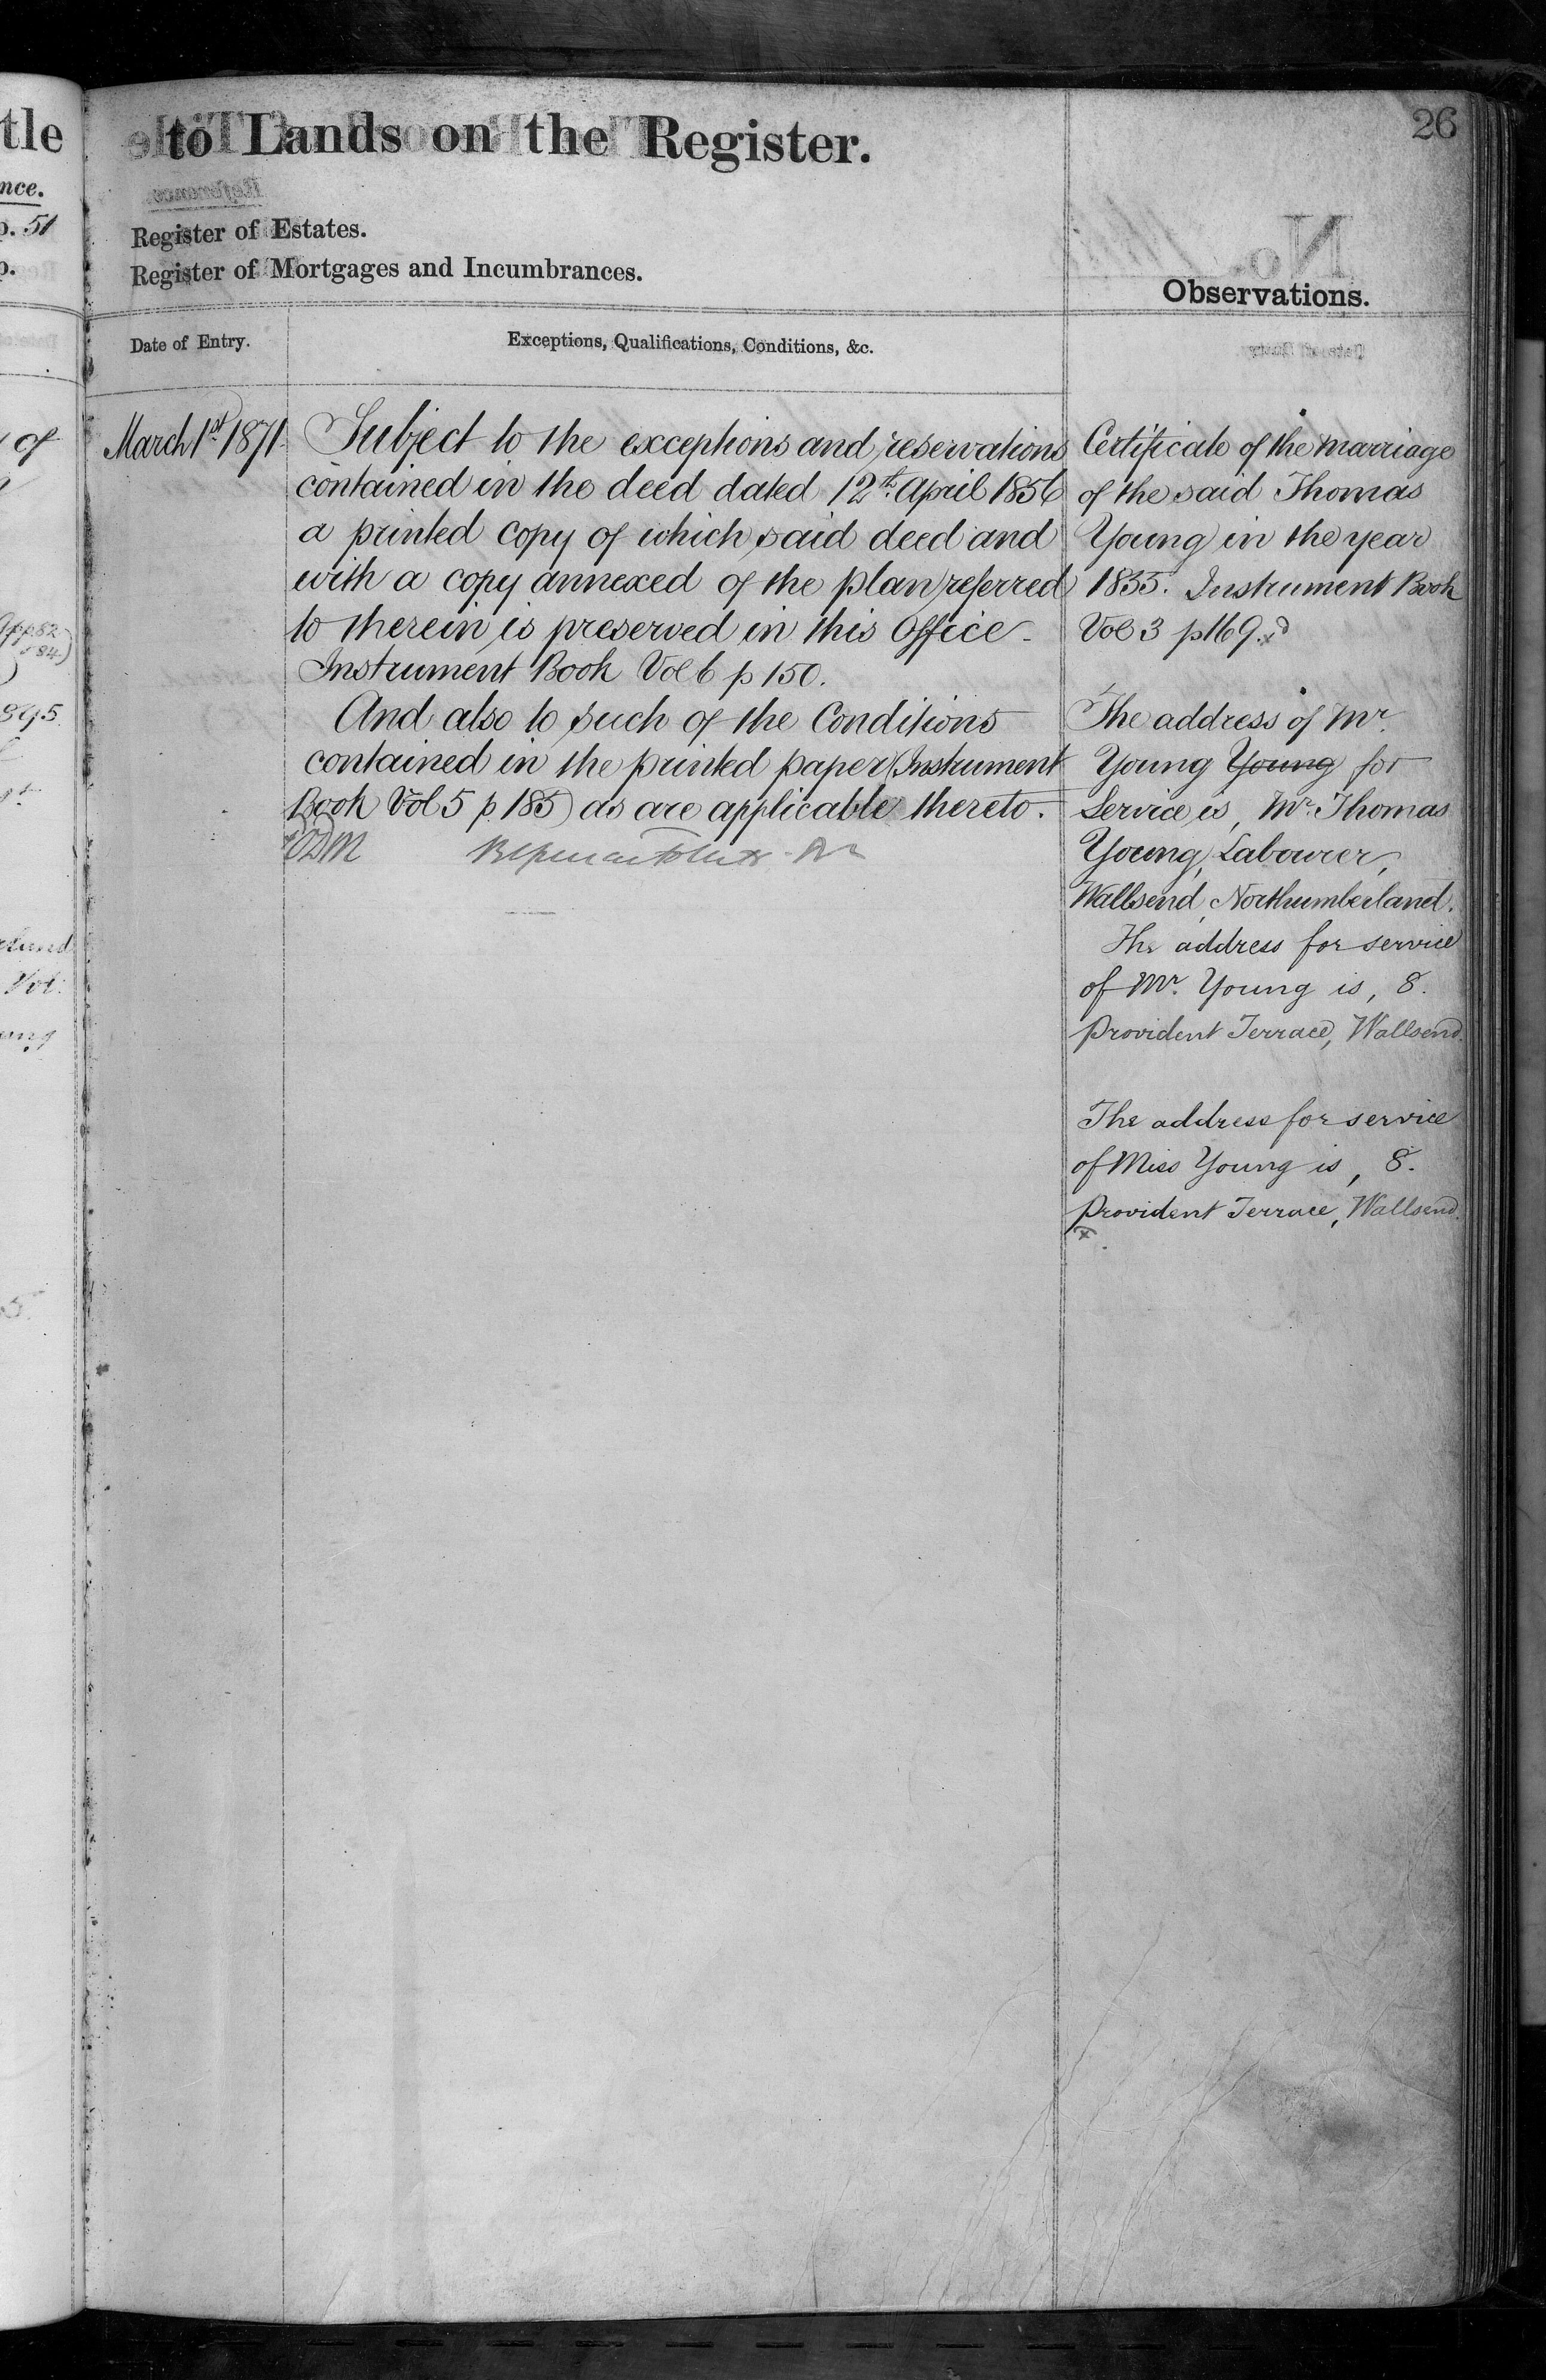 tle
nce.
p. 51
p.
of
895.
Vol:
26
to Lands on the Register.
Register of Estates.
Register of Mortgages and Incumbrances.
Observations.
Date of Entry.
Exceptions, Qualifications, Conditions, &c.
March 1st 1871
Subject to the exceptions and reservations
contained in the deed dated 12th April 1856
a printed copy of which said deed and
with a copy annexed of the plan referred
to therein is preserved in this Office
Instrument Book Vol 6 p 150.
And also to such of the Conditions
contained in the printed paper (Instrument
Book Vol 5 p 185) as are applicable thereto.
Certificate of the marriage
of the said Thomas
Young in the year
1835. Instrument Book
Vol 3 p 169.
The address of Mr.
Young Young for
Service is, Mr. Thomas
Young, Labourer,
Wallsend, Northumberland.
The address for service
of Mr. Young is, 8.
Provident Terrace, Wallsend.
The address for service
of Miss Young is, 8.
Provident Terrace, Wallsend.